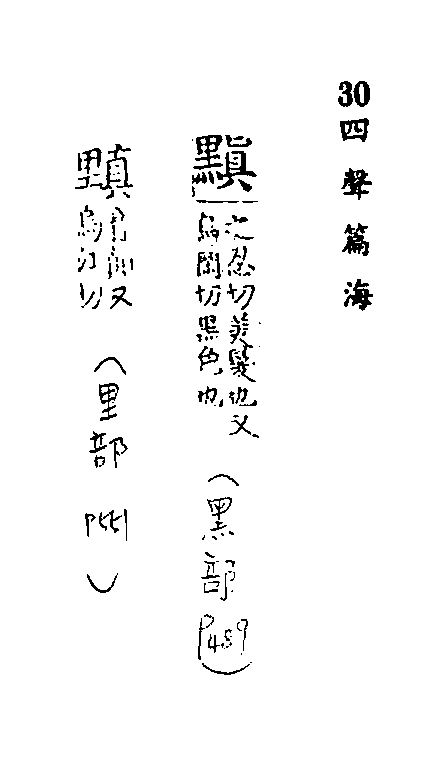 30 四聲篇海
黰 之忍切美髮也又
烏閑切黑色也 (黑部 P489)
月前又
烏切 (里部)